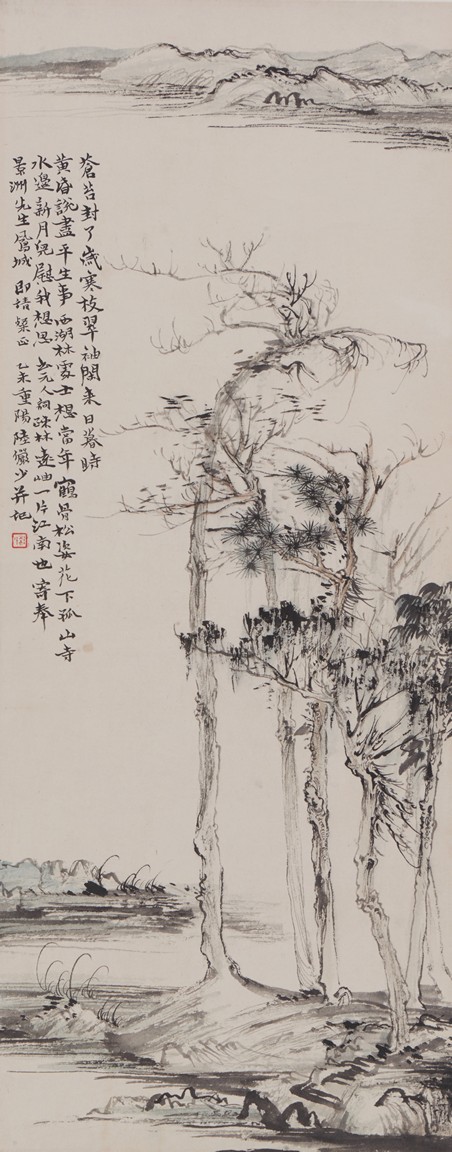 蒼苔封了歲寒枝翠袖閒來日暮時
黃昏說盡平生事西湖林處士想當年鶴骨松姿花下孤山寺
水邊新月兒慰我想思元人詞疎林遠岫一片江南也寄奉
景洲先生鳳城即請正乙未重陽陸儼少并記